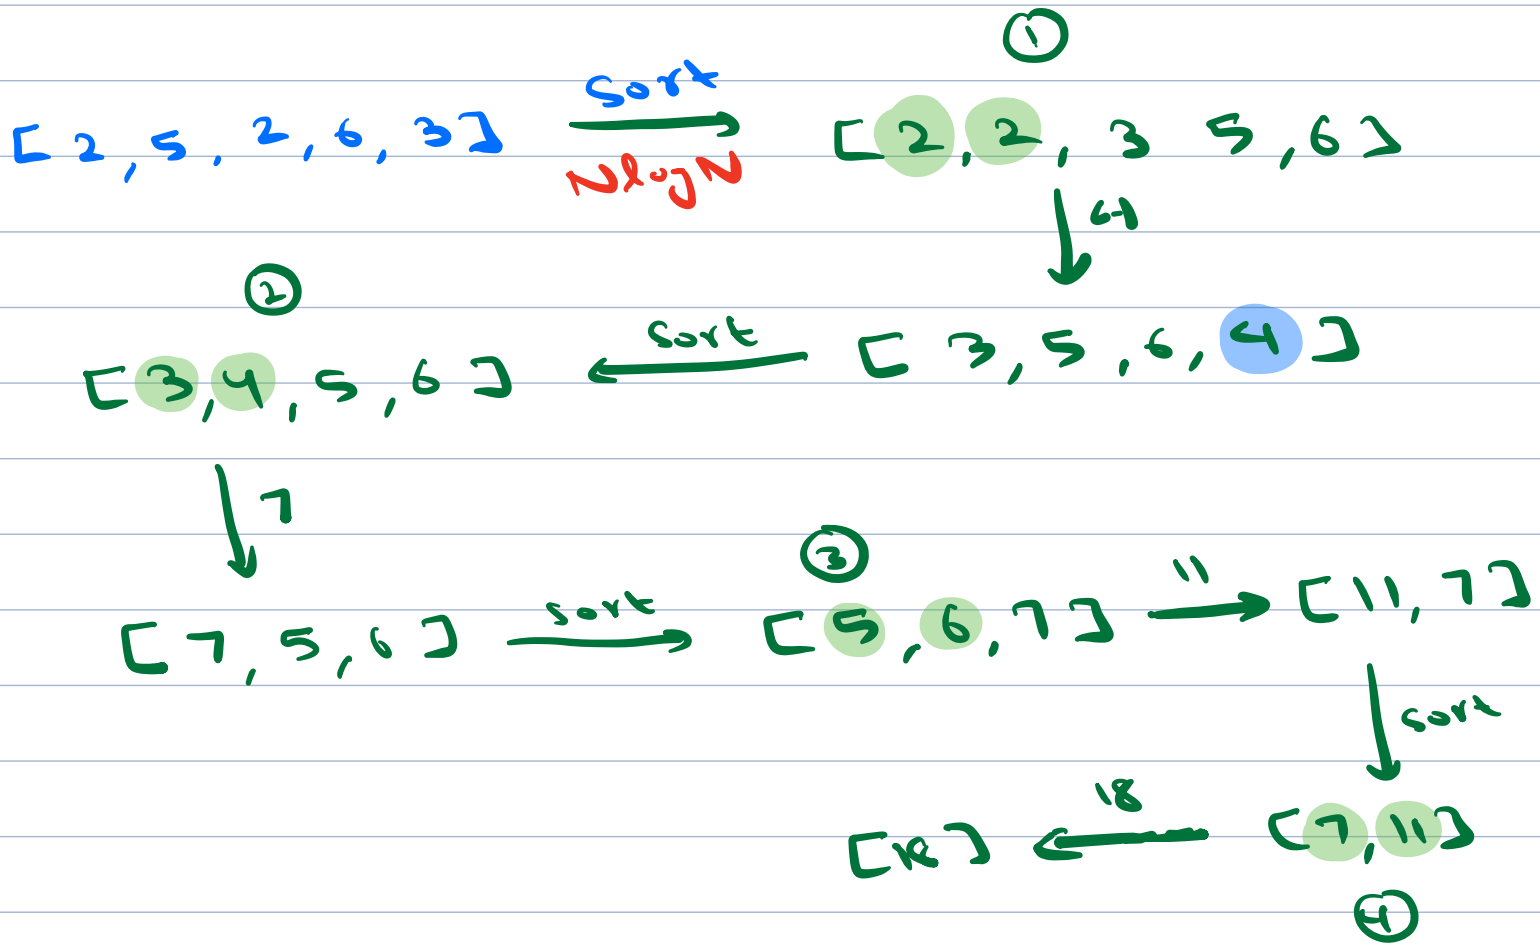 ①
[2, 5, 2, 6, 3] sort NlogN [2, 2, 3 5, 6]
4
②
[3, 4, 5, 6] sort [3, 5, 6, 4]
7
③
[7, 5, 6] sort [5, 6, 7] 11 [11, 7]
sort
[18] 18 [7, 11]
④